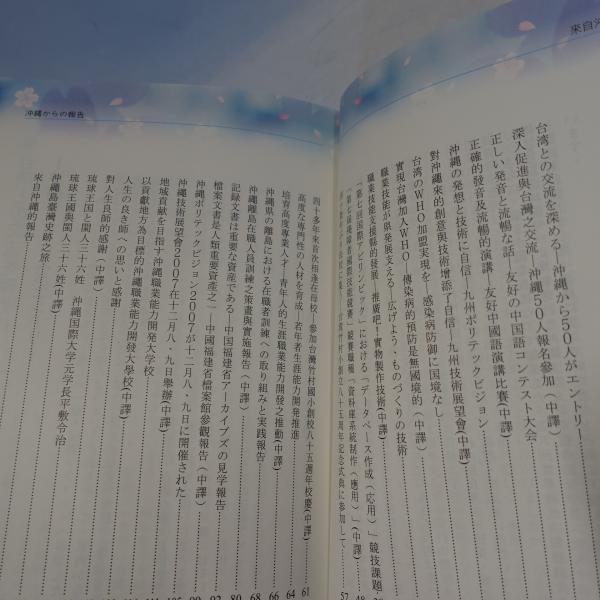 來自沖
台湾との交流を深める 沖縄から50人がエントリー
深入促進與台灣之交流 沖縄50人報名參加(中譯)
正しい発音と流暢な話 友好の中国語コンテスト大会
正確的發音及流暢的演講 友好中國語演講比賽(中譯)
沖縄の発想と技術に自信 九州ポリテックビジョン
對沖縄來的創意與技術増添了自信 九州技術展望會(中譯)
台湾のWHO加盟実現を 感染病防御に国境なし
實現台灣加入WHO 傳染病的預防是無國境的(中譯)
職業技能が県発展支える 広げよう・ものづくりの技術
職業技能支援縣的發展 推廣吧!實物製作技術(中譯)
「第七回国際アビリンピック」における「データベース作成(応用)」競技課題
「第七屆殘障者國際技能競賽」競賽職種「資料庫系統制作(應用)」(中譯)
創立八十五周年記念式典に参加して
57
沖縄からの報告
四十多年來首次相逢在母校 参加台灣竹村國小創校八十五週年校慶(中譯)
61
高度な専門性の人材を育成 若年者生涯能力開発推進
64
培育高度專業人才 青年人的生涯職業能力開發之推動(中譯)
66
沖縄県の離島における在職者訓練への取り組みと実践報告
68
沖縄離島在職人員訓練之策畫與實施報告(中譯)
80
記録文書は重要な資産である 中国福建省アーカイブズの見学報告
92
檔案文書是人類重要資產之一 中國福建省檔案館參觀報告(中譯)
99
沖縄ポリテックビジョン2007が十二月八、九日に開催された
沖縄技術展望會2007在十二月八、九日舉辦(中譯)
地域貢献を目指す沖縄職業能力開発大学校
以貢獻地方為目標的沖縄職業能力開發大學校(中譯)
人生の良き師への思いと感謝
對人生良師的感謝(中譯)
琉球王国と閩人三十六姓 沖縄国際大学元学長平敷令治
琉球王國與閩人三十六姓(中譯)
沖縄島臺灣史跡之旅
來自沖縄的報告